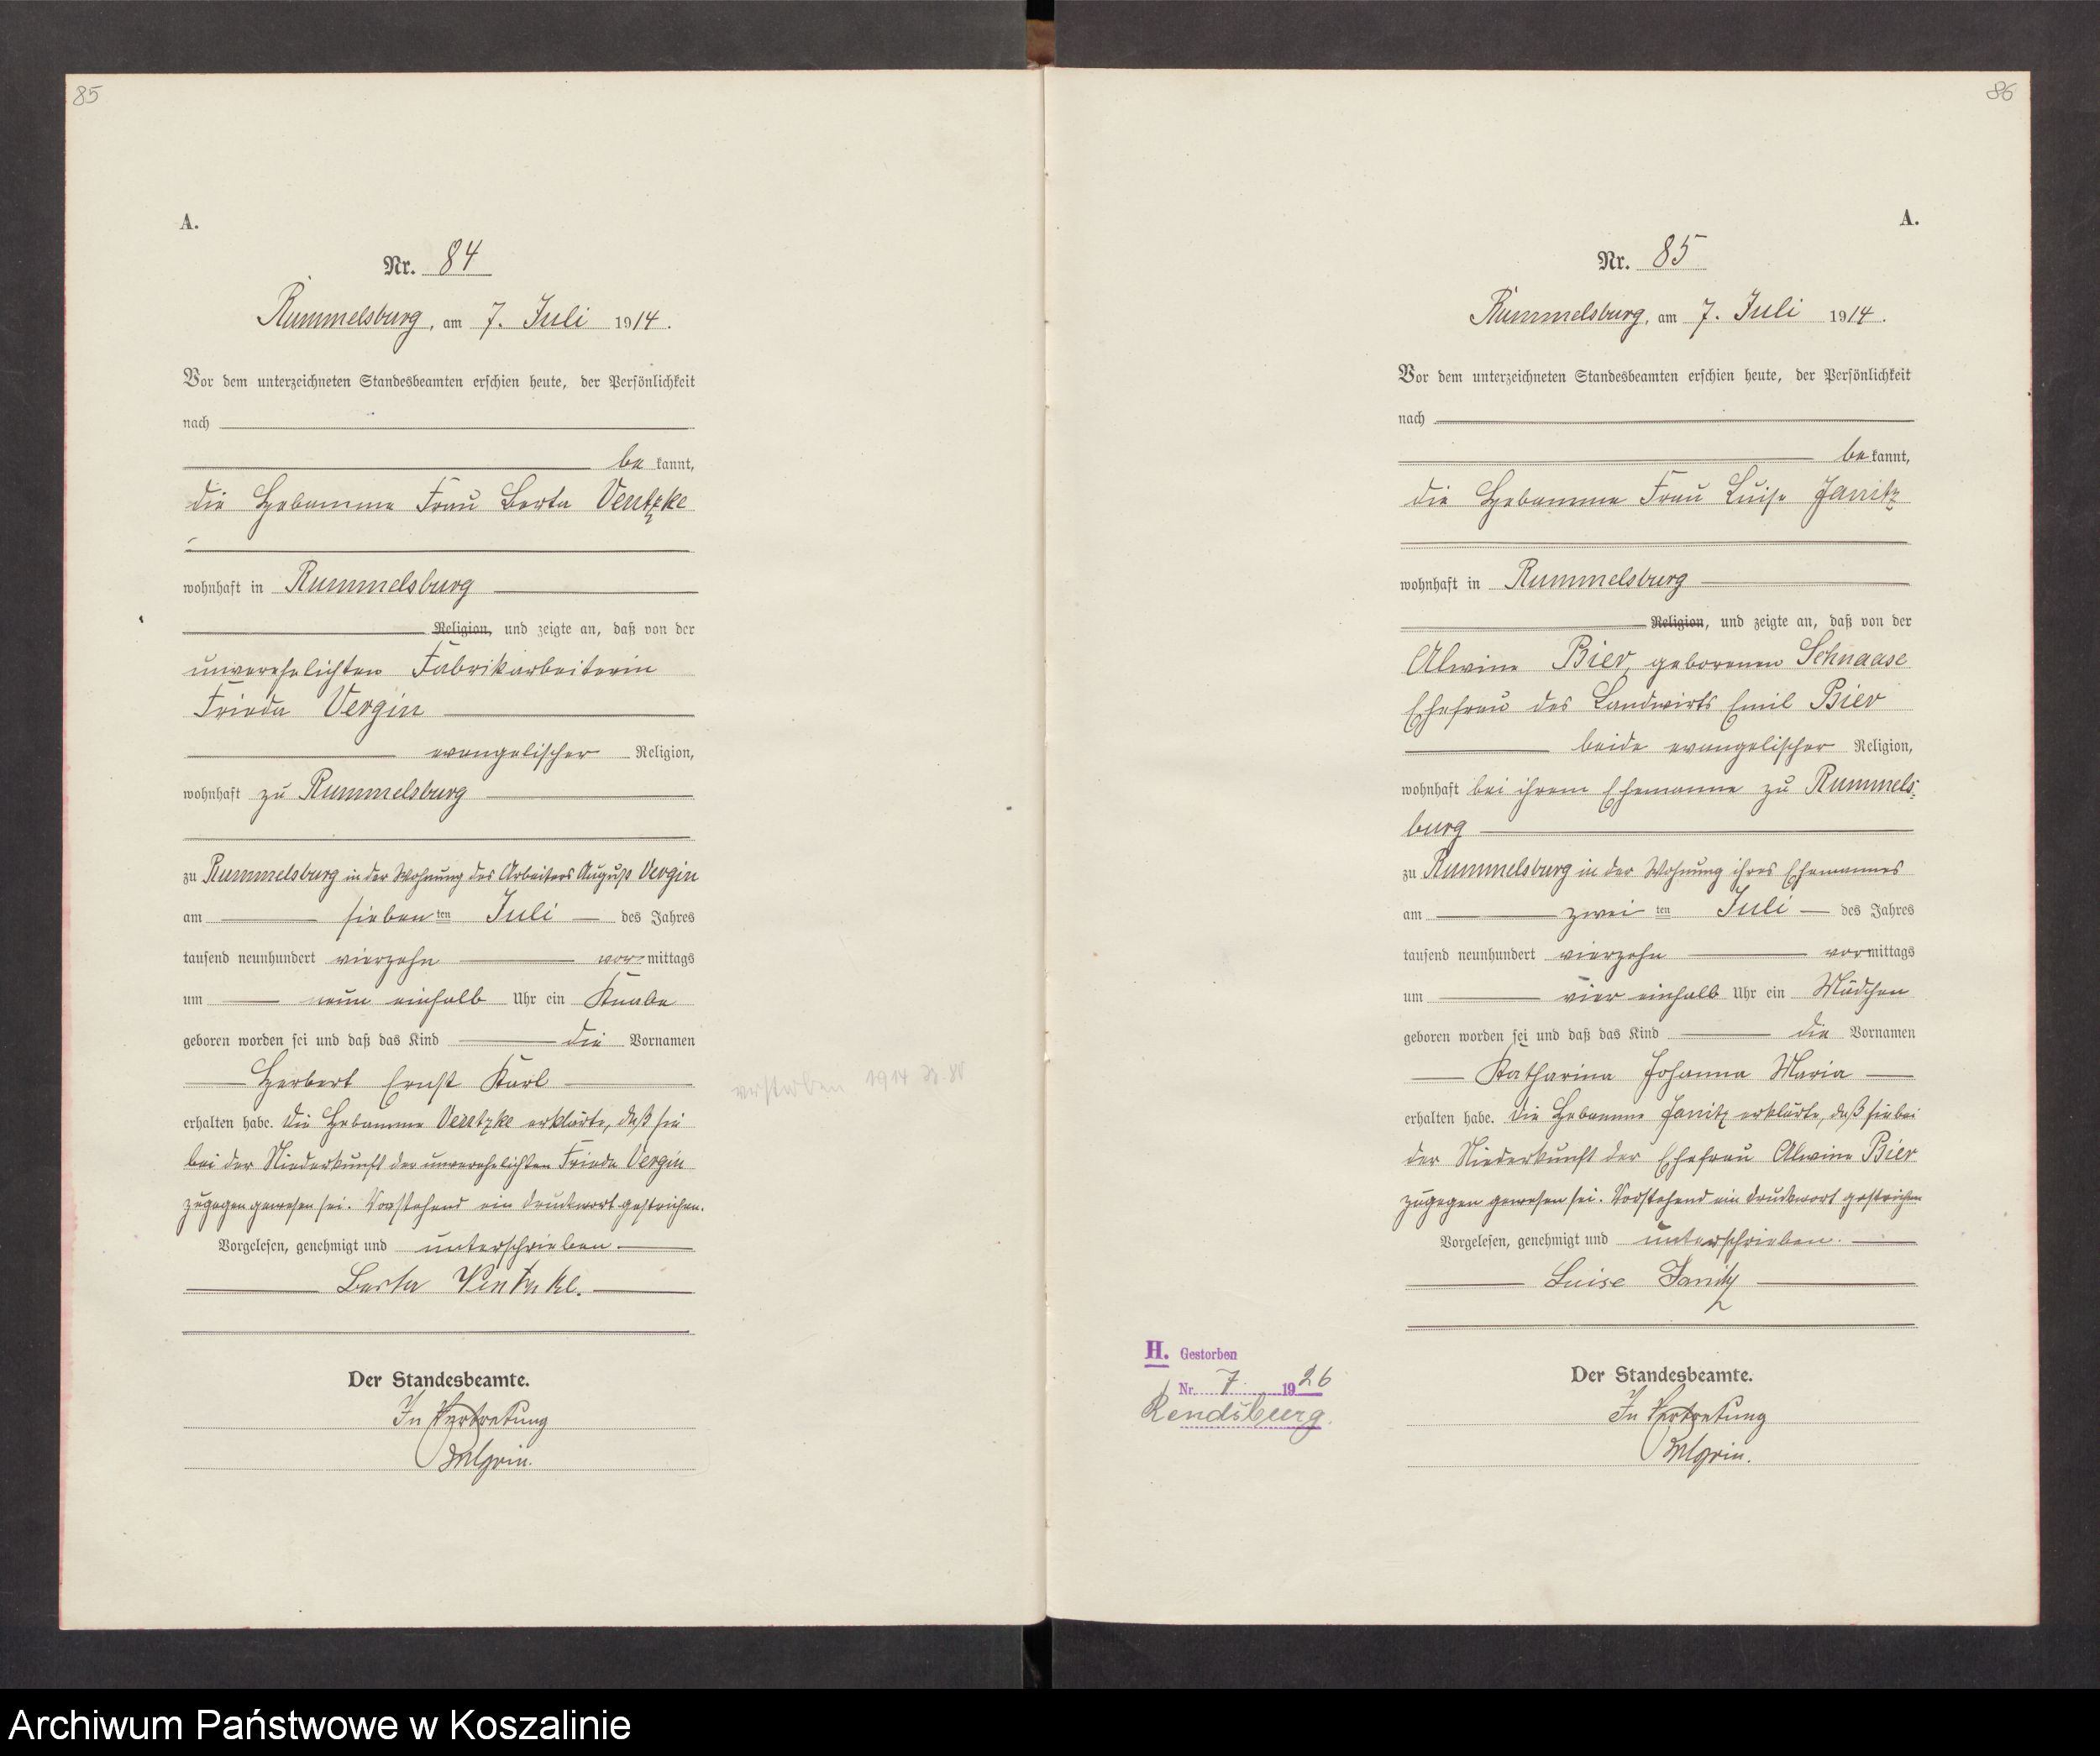 85
A.
Nr. 84
Rummelsburg, am 7. Juli 1914.
Vor dem unterzeichneten Standesbeamten erschien heute, der Persönlichkeit
nach
be kannt,
die Hebamme Frau Berta Ventzke
wohnhaft in Rummelsburg
Religion, und zeigte an, daß von der
unverehelichten Fabrikarbeiterin
Frieda Vergin
evangelischer Religion,
wohnhaft zu Rummelsburg
zu Rummelsburg in der Wohnung des Arbeiters August Vergin
am sieben ten Juli des Jahres
tausend neunhundert vierzehn vor mittags
um neun einhalb Uhr ein Knabe
geboren worden sei und daß das Kind die Vornamen
Herbert Ernst Karl
erhalten habe. Die Hebamme Ventzke erklärte, daß sie
bei der Niederkunft der unverehelichten Frieda Vergin
zugegen gewesen sei. Vorstehend ein Druckwort gestrichen.
Vorgelesen, genehmigt und unterschrieben.
Berta Ventzke.
Der Standesbeamte.
In Vertretung
verstorben 1914
86
A.
Nr. 85
Rummelsburg, am 7. Juli 1914.
Vor dem unterzeichneten Standesbeamten erschien heute, der Persönlichkeit
nach
be kannt,
die Hebamme Frau Luise Janitz
wohnhaft in Rummelsburg
Religion, und zeigte an, daß von der
Alwine Bier, geborenen Schnaase
Ehefrau des Landwirts Emil Bier
beide evangelischer Religion,
wohnhaft bei ihrem Ehemanne zu Rummels-
burg
zu Rummelsburg in der Wohnung ihres Ehemannes
am zwei ten Juli des Jahres
tausend neunhundert vierzehn vormittags
um vier einhalb Uhr ein Mädchen
geboren worden sei und daß das Kind die Vornamen
Katharina Johanna Maria
erhalten habe. Die Hebamme Janitz erklärte, daß sie bei
der Niederkunft der Ehefrau Alwine Bier
zugegen gewesen sei. Vorstehend ein Druckwort gestrichen
Vorgelesen, genehmigt und unterschrieben.
Luise Janitz
Der Standesbeamte.
In Vertretung
H. Gestorben
Nr. 7 1926
Rendsburg.
Archiwum Państwowe w Koszalinie